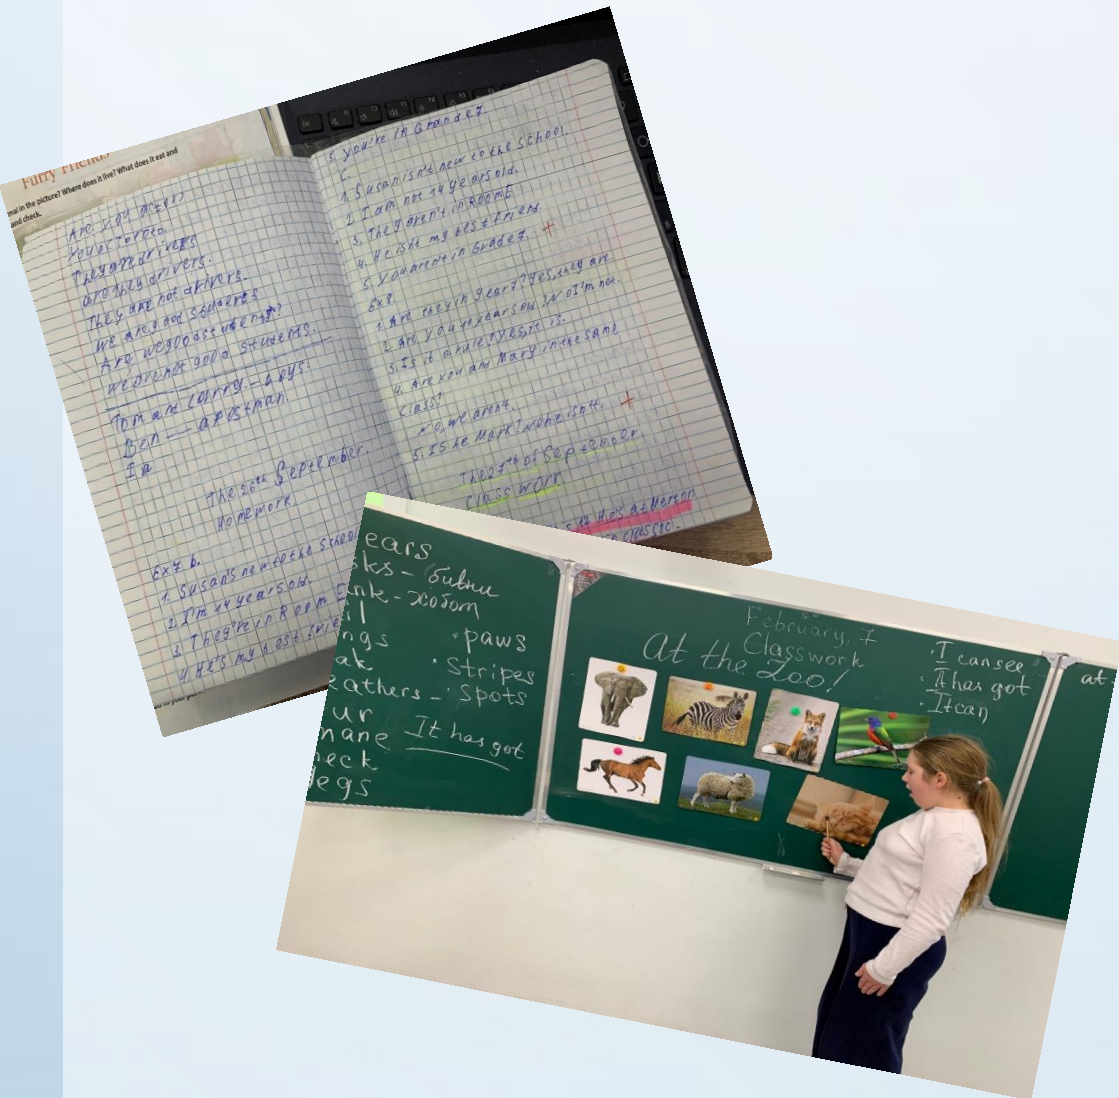 Furry Friends
mal in the picture? Where does it live? What does it eat and
and check.
They are drivers
are they drivers.
They are not drivers.
we are good students
Are we good students?
we are not good students.
Tom and boys.
Ben — a postman
The 26th September
Homework
Ex 7 b.
1. Susan's new to the school
2. I'm 14 years old.
3. They're in Room E
4. He's my best frie
5. you're in Grande 7.
C.
1. Susan isn't new to the school.
2. I am not 14 years old.
3. They aren't in Room E
4. He isht my best friend.
5. You arent in Grade 7.
Ex 8.
1. Are they in Year 7? Yes, they are.
2. Are you 14 years old? No I'm not.
3. Is it a rule? Yes, it is.
4. Are you and Mary in the same
Class?
No, we aren't.
5. Is he Mark? No he isn't.
The 27th of September
Class worr
ears
ks - бивни
nk - хобот
il
ngs
ak
eathers -
ur
mane
neck
legs
paws
stripes
spots
It has got
February, 7
Classwork
at the Zoo!
I can see
It has got
It can
at